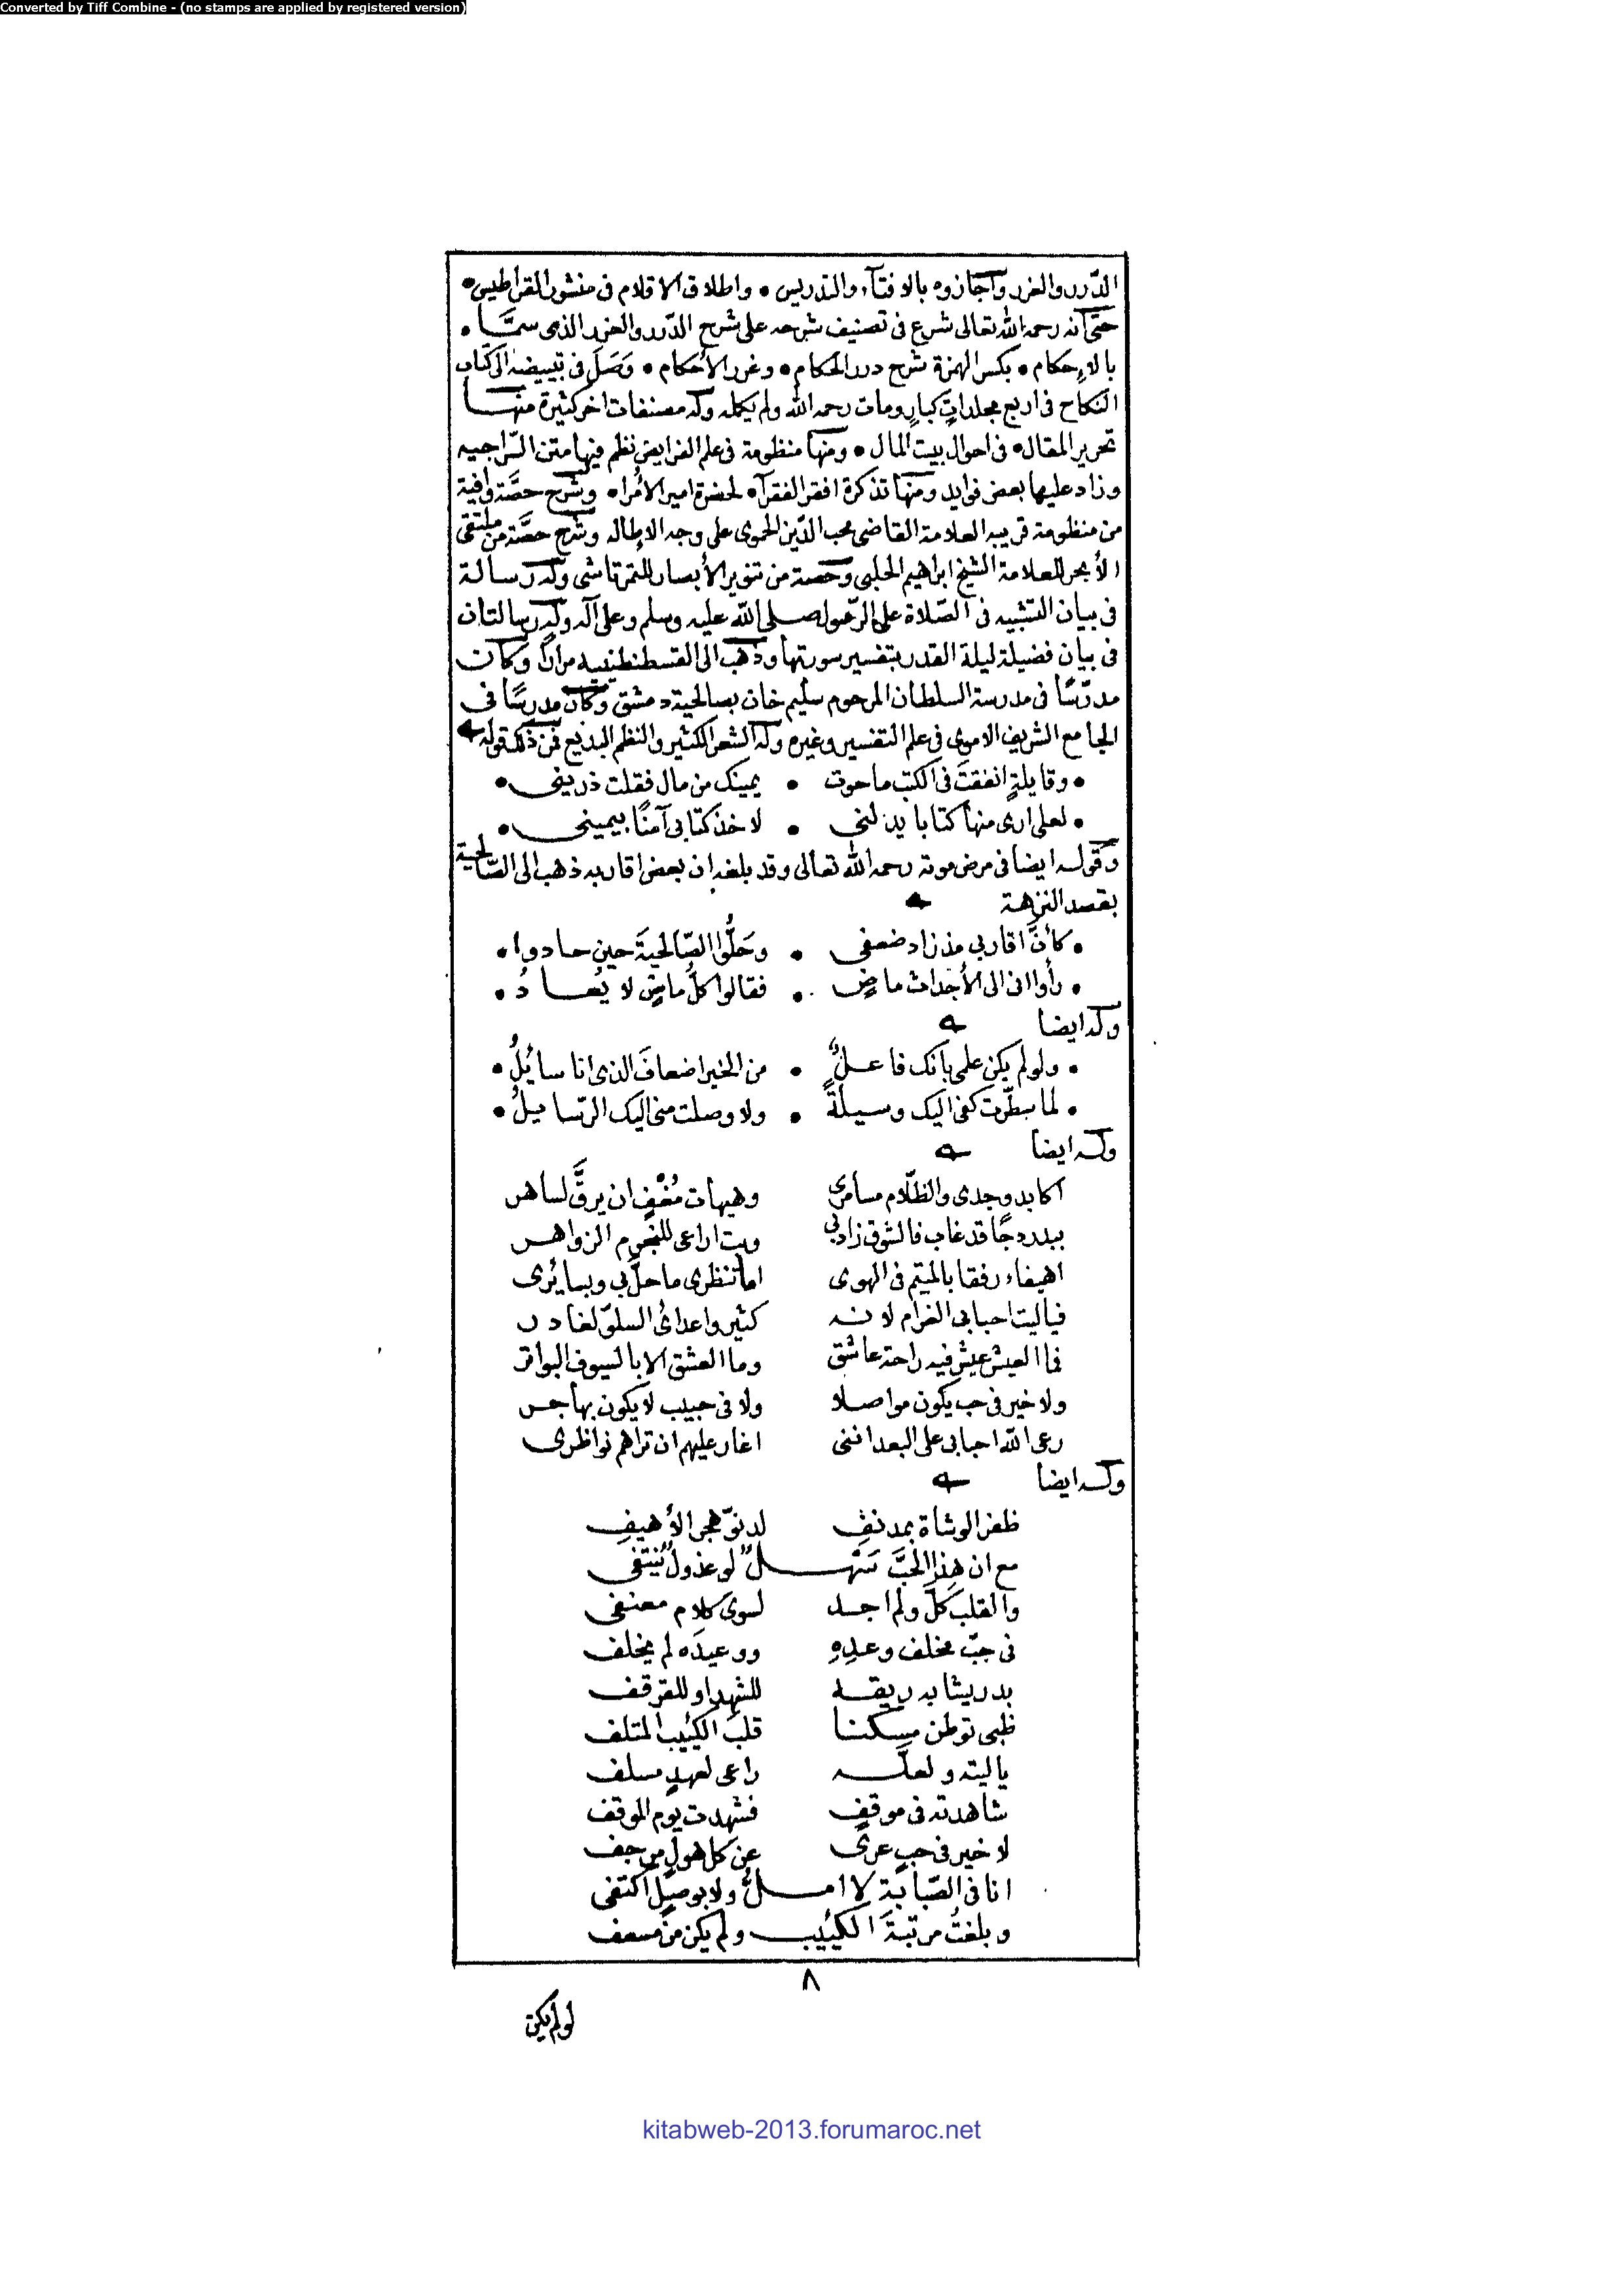 Converted by Tiff Combine - (no stamps are applied by registered version)
الدّرر والغرر وأجازوه بالافتآء والتدريس • واطلاق الاقلام فى منشور القراطيس •
حتى انه رحمه الله تعالى شرع فى تصنيف شرحه على شرح الدّرر والغرر الذى سمّا •
بالاِحكام • بكسر الهمزة شرح درر الحكام • وغرر الأحكام • وَصَلَ فى تبييضه الى كتاب
النكاح فى اربع مجلداتٍ كبارٍ ومات رحمه الله ولم يكمله وله مصنفات اخر كثيرة منها
تحرير المقال • فى احوال بيت المال • ومنها منظومة فى علم الفرايض نظم فيها متن السّراجيه
وزاد عليها بعض فوايد ومنها تذكرة افقر الفقرآء • لحضرة امير الأُمرا • وشرح حصَّة وافية
من منظومة قريبه العلامة القاضى محب الدّين الحموى على وجه الاطاله وشرح حصَّة من ملتقى
الأبحر للعلامة الشيخ ابراهيم الحلبى وحصة من تنوير الأبصار للتمرتاشى وله رسالة
فى بيان التشبيه فى الصّلاة على الرّسول صلى الله عليه وسلم وعلى آله وله رسالتان
فى بيان فضيلة ليلة القدر بتفسير سورتها وذهب الى القسطنطينيه مرارًا وكان
مدرّسًا فى مدرسة السلطان المرحوم سليم خان بصالحية دمشق وكان مدرسًا فى
الجامع الشريف الاموى فى علم التفسير وغيره وله الشعر الكثير والنظم البديع فمن ذلك قوله
• وقايلةٍ انفقتَ فى الكتب ماحوت • يمينك من مال فقلت ذرينى •
• لعلى ارى منها كتابا يدلنى • لاخذ كتابى آمنًا بيمينى •
وقوله ايضا فى مرض موته رحمه الله تعالى وقد بلغه ان بعض اقاربه ذهب الى الصّالحية
بقصد النزهة
• كأنَّ اقاربى مذ زاد ضعفى • وحَلُّوا الصّالحيةَ حين حادوا •
• رأوا انى الى الأجداث ماضٍ • فقالوا كلُّ ماضٍ لا يُعادُ •
وله ايضا
• ولو لم يكن علمى بانك فاعلٌ • من الخير اضعافَ الذى انا سائِلُ •
• لما سطّرت كفى اليك وسيلةً • ولا وصلت منى اليك الرّسايلُ •
وله ايضا
أكابد وجدى والظّلام مسامرى وهيهات مُغْفٍ ان يرقَّ لساهر
ببدر دجًا قد غاب فالشوق زادنى وبت اراعى للنجوم الزواهر
اهيفاء رفقا بالمتيم فى الهوى اما تنظرى ما حلّ بى وبسائرى
فياليت احبابى الغرام لانه كثير واعدائى السلوّ لغادر
فما العيش عيش فيه راحة عاشق وما العشق الا بالسيوف البواتر
ولا خير فى حب يكون مواصلا ولا فى حبيب لا يكون بهاجر
رعى الله احبابى على البعد اننى اغار عليهم ان تراهم نواظرى
وله ايضا
ظفر الوشاة بمدنفِ لدنوّ هجر الأهيفِ
مع ان هذا الحبَّ سهلٌ لو عذولٌ ينتفى
والقلب كَلَّ ولم اجد لسوى كلام معنفى
فى حبّ مخلف وعدِهِ ووعيدَه لم يخلف
بدر يشابه ريقه للشهد او للقرقف
ظبى توطن مسكنا قلبَ الكئيب المتلف
ياليته ولعلّه راعى لعهدٍ مسلف
شاهدته فى موقفٍ فشهدت يوم الموقف
لا خير فى حب عرى عن كل هول مرجف
انا فى الصّبابة لا املُّ ولا بوصلٍ اكتفى
وبلغتُ مرتبةَ الكئيب ولم يكن من مسعف
٨
لو لم يكن
kitabweb-2013.forumaroc.net